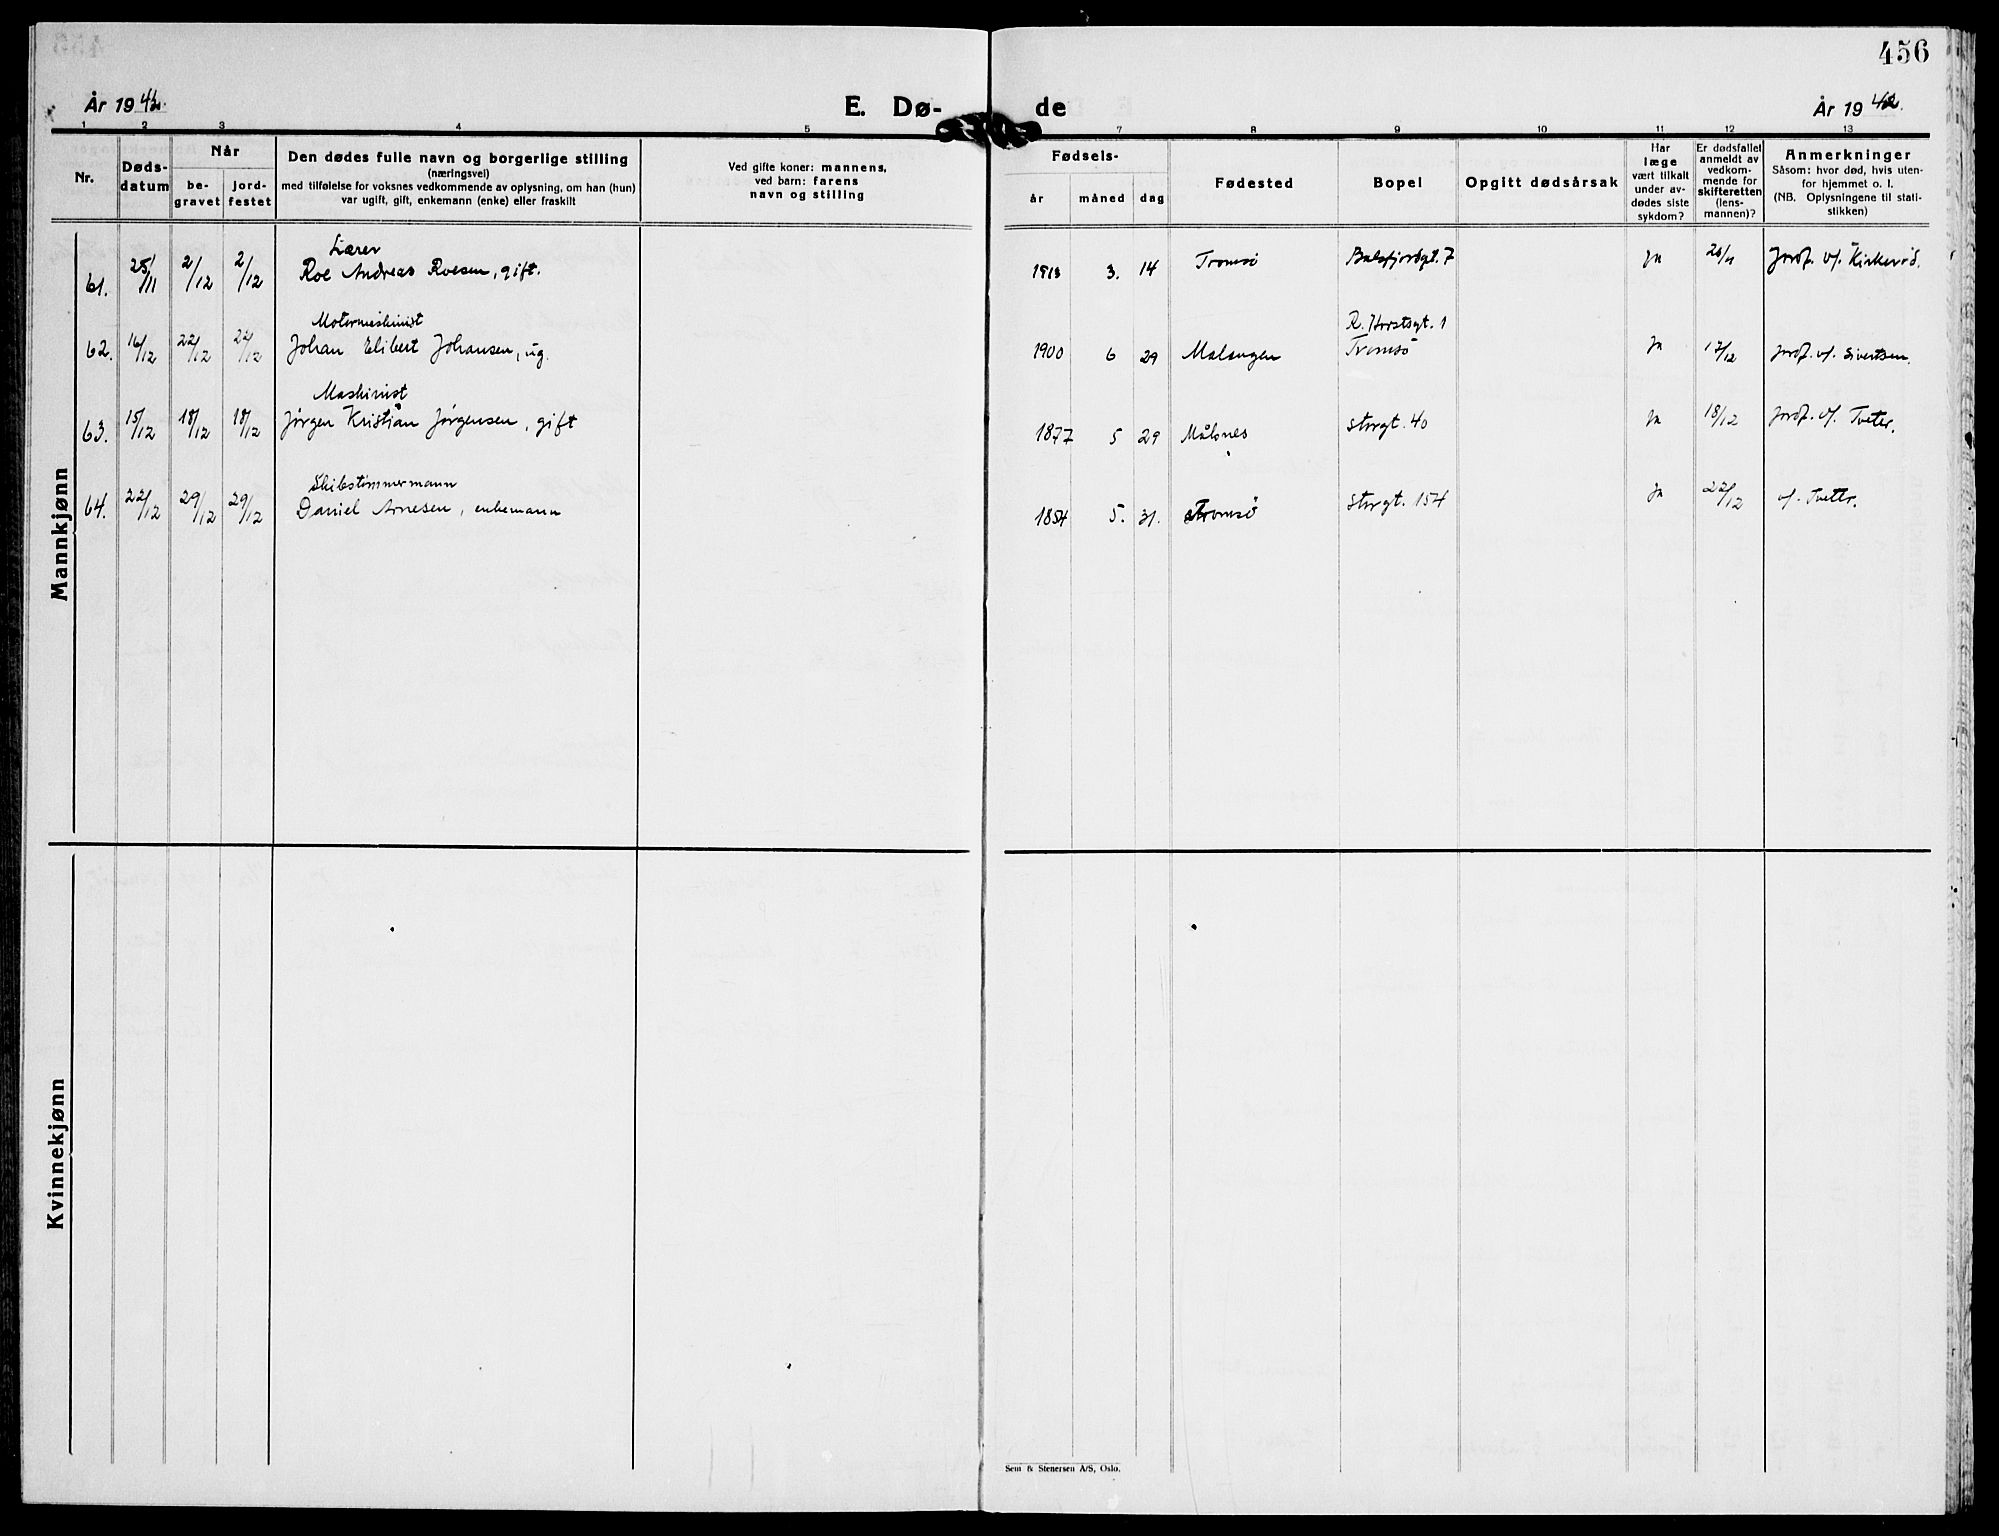 456
År 1942. E. Dø- de År 1942.
1 2 3 4 5 7 8 9 10 11 12 13
Nr.
Døds-
datum
Når
be-
gravet
jord-
festet
Den dødes fulle navn og borgerlige stilling
(næringsvei)
med tilføielse for voksnes vedkommende av oplysning, om han (hun)
var ugift, gift, enkemann (enke) eller fraskilt
Ved gifte koner: mannens,
ved barn: farens
navn og stilling
Fødsels-
år måned dag
Fødested
Bopel
Opgitt dødsårsak
Har
læge
vært tilkalt
under av-
dødes siste
sykdom?
Er dødsfallet
anmeldt av
vedkom-
mende for
skifteretten
(lens-
mannen)?
Anmerkninger
Såsom: hvor død, hvis uten-
for hjemmet o. l.
(NB. Oplysningene til stati-
stikken)
Mannkjønn
Lærer
61. 25/11 2/12 2/12 Roe Andreas Roesen, gift. 1913 3. 14 Tromsø Balsfjordgt. 7 Ja 26/11 Jordf. v/. Kirkerød.
Motormaskinist R. Horstsgt. 1
62. 16/12 22/12 22/12 Johan Elibert Johansen, ug. 1900 6 29 Malangen Tromsö Ja 17/12 Jordf. v/. Sivertsen.
Maskinist
63. 15/12 18/12 18/12 Jörgen Kristian Jörgensen, gift 1877 5 29 Målsnes Storgt. 40 Ja 18/12 Jordf. v/. Tveter.
Skibstimmermann
64. 22/12 29/12 29/12 Daniel Arnesen, enkemann 1854 5. 31. Tromsö Storgt. 154 Ja 22/12 v/. Tveter.
Kvinnekjønn
Sem & Stenersen A/S, Oslo.